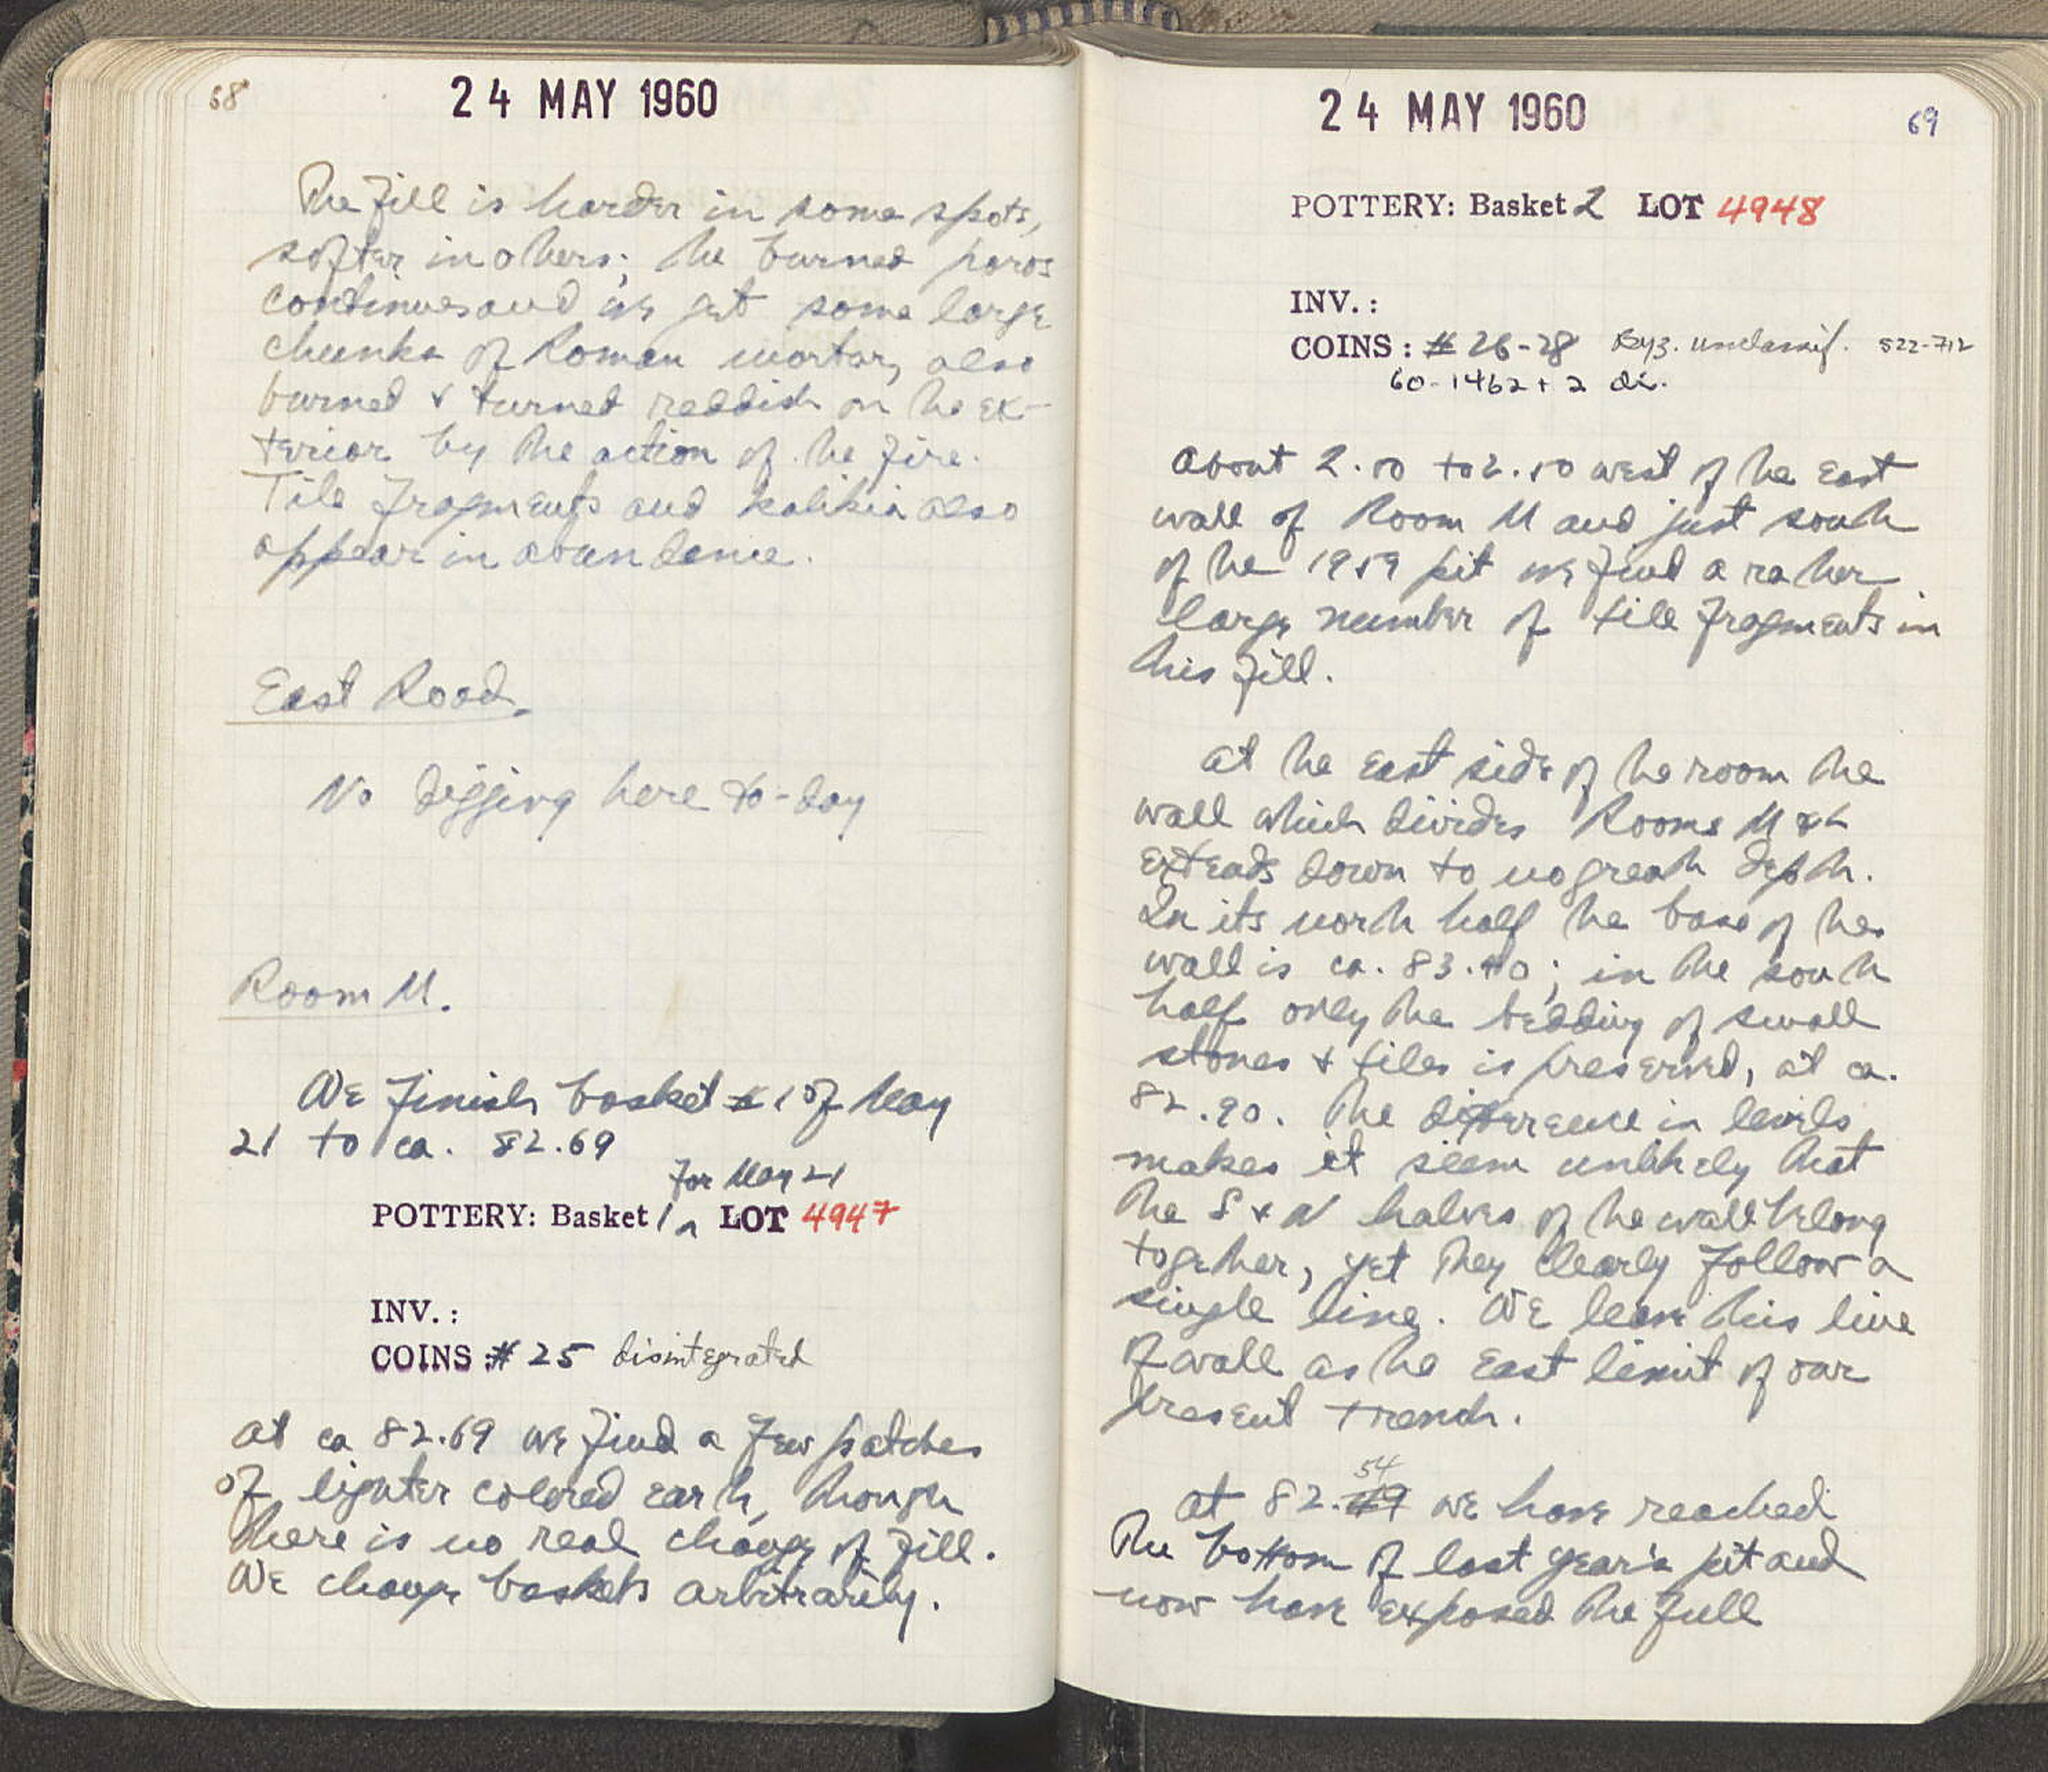 68
24 MAY 1960
The fill is harder in some spots,
softer in others; the burned poros
continues and we get some large
chunks of Roman mortar, also
burned & turned reddish on the ex-
terior by the action of the fire.
Tile fragments and kalikia also
appear in abundance.
East Road.
No digging here to-day
Room M.
We finish basket # 1 of May
21 to ca. 82.69
for May 21
POTTERY: Basket 1a LOT 4947
INV.:
COINS: # 25 disintegrated
At ca 82.69 we find a few patches
of lighter colored earth, though
there is no real change of fill.
We change baskets arbitrarily.
24 MAY 1960
69
POTTERY: Basket 2 LOT 4948
INV.:
COINS: # 26-28 Byz. unclassif. 522-712
60-1462 + 2 dis.
About 2.00 to 2.50 west of the East
wall of Room M and just south
of the 1959 pit we find a rather
large number of tile fragments in
this fill.
At the East side of the room the
wall which divides Rooms M & L
extends down to no great depth.
In its north half the base of the
wall is ca. 83.40; in the south
half only the bedding of small
stones & tiles is preserved, at ca.
82.90. The difference in levels
makes it seem unlikely that
the S & N halves of the wall belong
together, yet they clearly follow a
single line. We leave this line
of wall as the East limit of our
present trench.
54
At 82.49 we have reached
the bottom of last year's pit and
now have exposed the full